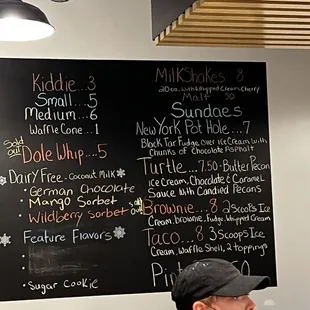 Kiddie...3
Small...5
Medium...6
Waffle Cone...1
Sold out
Dole Whip...5
Dairy Free - Coconut Milk
• German Chocolate
• Mango Sorbet
• Wildberry Sorbet
Feature Flavors
• Sugar Cookie
MilkShakes 8
20oz. with Whipped Cream & Cherry
Malt .50
Sundaes
New York Pot Hole...7
Black Tar Fudge over Ice Cream with
Chunks of Chocolate Asphalt
Turtle...7.50 - Butter Pecan
Ice Cream, Chocolate & Caramel
Sauce with Candied Pecans
Brownie...8 2 Scoops Ice
Cream, brownie, Fudge, Whipped Cream
Taco...8 3 Scoops Ice
Cream, Waffle Shell, 2 toppings